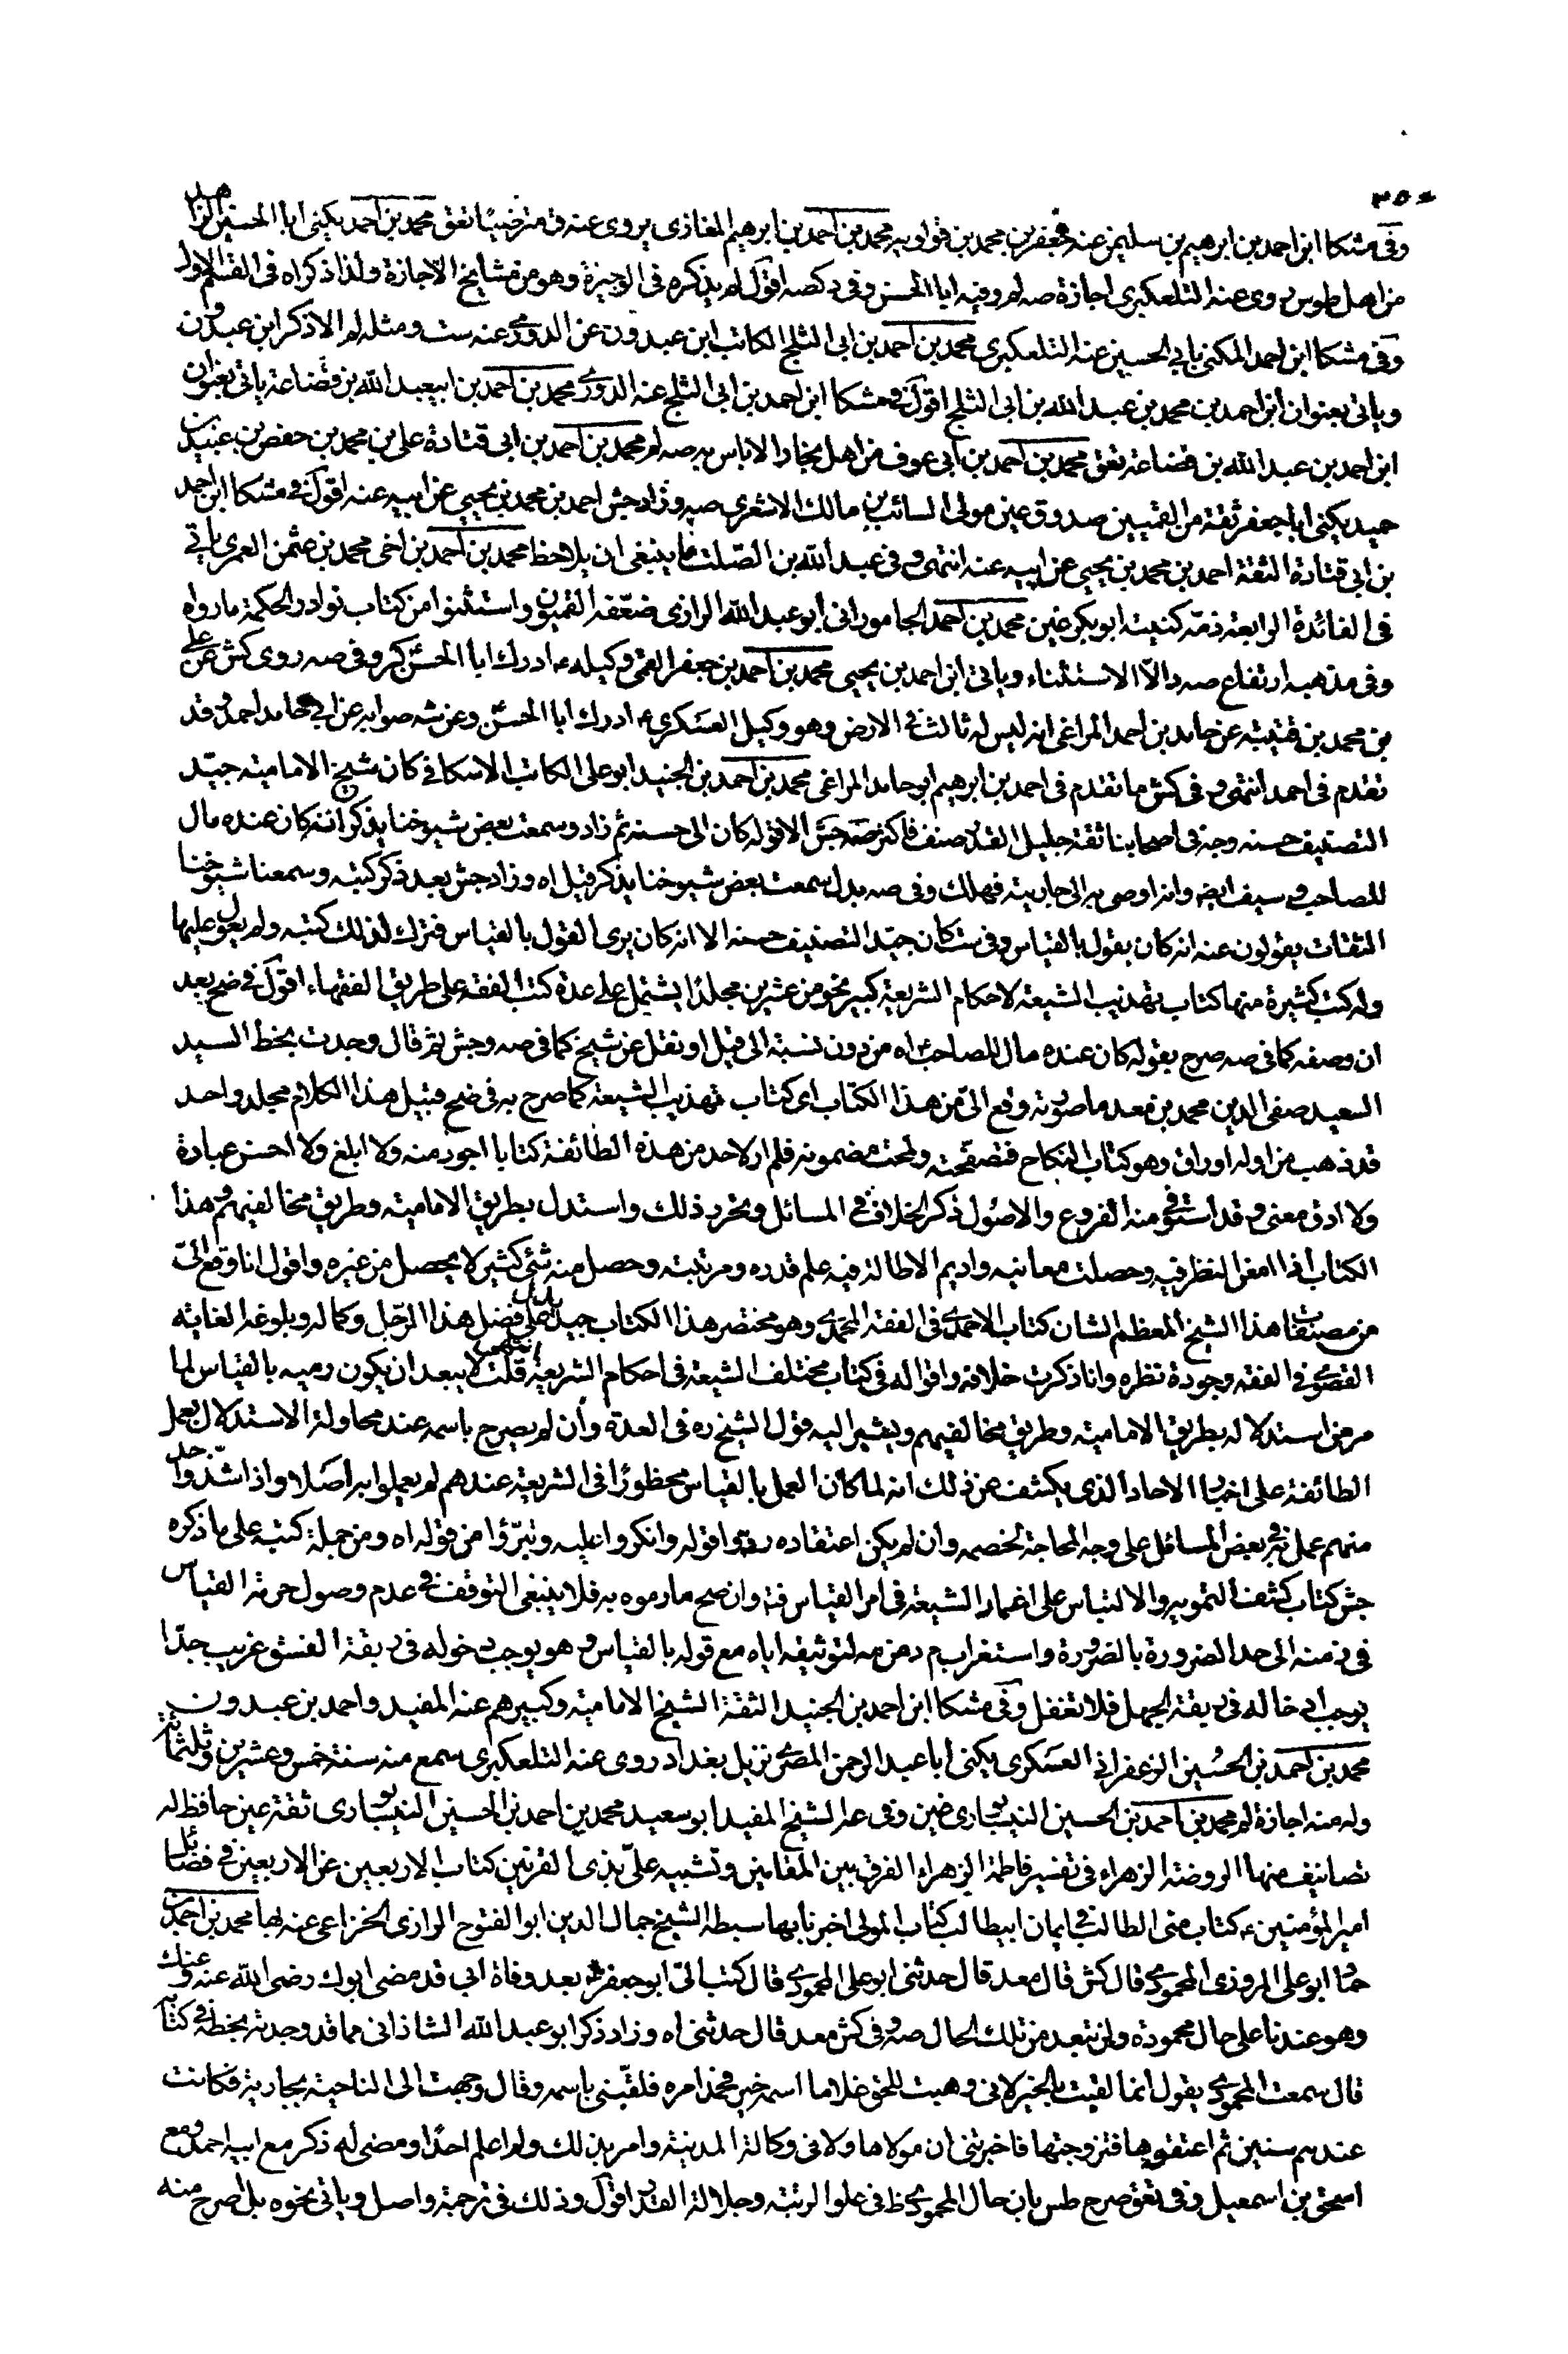 ٣٥٠
وفي مشكا ابن احمد بن ابرهيم بن سليم عنه جعفر بن محمد بن قولويه محمد بن احمد بن ابرهيم المغاذى يروى عنه ق مترضيا تعق محمد بن احمد يكنى ابا الحسين الزاهد
من اهل طوس روى عنه التلعكبرى اجازة صه لم وفيه ابا الحسن وفي د كصه اقول لم يذكره في الوجيزة وهو من مشايخ الاجازة ولذا ذكراه في القسم الاول
وفي مشكا ابن احمد المكنى بابي الحسين عنه التلعكبرى محمد بن احمد بن ابى الثلج الكاتب ابن عبدون عن الدورى عنه ست ومثله لم الا ذكر ابن عبدون
وياتى بعنوان ابن احمد بن محمد بن عبد الله بن ابى الثلج اقول في مشكا ابن احمد بن ابى الثلج عنه الدورى محمد بن احمد بن ابيعبد الله بن قضاعة ياتى بعنوان
ابن احمد بن عبد الله بن قضاعة تعق محمد بن احمد بن ابي عوف من اهل بخارا لا باس به صه لم محمد بن احمد بن ابى قتادة على بن محمد بن حفص بن عبيد بن
حميد يكنى ابا جعفر ثقة من القميين صدوق عين مولى السائب بن مالك الاشعرى صه وزاد جش احمد بن محمد بن يحيى عن ابيه عنه اقول في مشكا ابن احمد
بن ابى قتادة الثقة احمد بن محمد بن يحيى عن ابيه عنه انتهى وفى عبد الله بن الصلت ما ينبغى ان يلاحظ محمد بن احمد بن اخى محمد بن عثمن العمرى ياتي
فى الفائدة الرابعة ذمه كنيته ابو بكر غين محمد بن احمد الجامورانى ابو عبد الله الرازى ضعفه القميون واستثنوا من كتاب نوادر الحكمة ما رواه
وفى مذهبه ارتفاع صه د الا الاستثناء وياتى ابن احمد بن يحيى محمد بن احمد بن جعفر القمى وكيله ع ادرك ابا الحسن كر وفي صه روى كش عن على
بن محمد بن قتيبة عن حامد بن احمد المراغى انه ليس له ثالث في الارض وهو وكيل العسكرى ع ادرك ابا الحسن وعن شه صوابه عن ابي حامد احمد وقد
تقدم في احمد انتهى وفي كش ما تقدم فى احمد بن ابرهيم ابو حامد المراغى محمد بن احمد بن الجنيد ابو على الكاتب الاسكافى كان شيخ الامامية جيد
التصنيف حسنه وجه فى اصحابنا ثقة جليل القدر صنف فاكثر صه جش الا قوله كان الى حسنه ثم زاد وسمعت بعض شيوخنا يذكر انه كان عنده مال
للصاحب ع وسيف ايضه وانه اوصى به الى جاريته فهلك وفى صه بدل سمعت بعض شيوخنا يذكر قيل اه وزاد جش بعد ذكر كتبه وسمعنا شيوخنا
الثقات يقولون عنه انه كان يقول بالقياس وفى ست كان جيد التصنيف حسنه الا انه كان يرى القول بالقياس فترك لذلك كتبه ولم يعول عليها
وله كتب كثيرة منها كتاب تهذيب الشيعة لاحكام الشريعة كبير نحو من عشرين مجلدا يشتمل على عدة كتب الفقه على طريق الفقهاء اقول في ضح بعد
ان وصفه كما فى صه صرح بقوله كان عنده مال للصاحب ع اه من دون نسبة الى قيل او نقل عن شيخ كما فى صه وجش ثم قال وجدت بخط السيد
السعيد صفى الدين محمد بن معد ما صورته وقع الى من هذا الكتاب اى كتاب تهذيب الشيعة كما صرح به فى ضح قبيل هذا الكلام مجلد واحد
قد ذهب من اوله اوراق وهو كتاب النكاح فتصفحته ولمحت مضمونه فلم ار لاحد من هذه الطائفة كتابا اجود منه ولا ابلغ ولا احسن عبارة
ولا ادق معنى وقد استوفى منه الفروع والاصول ذكر الخلاف في المسائل وتحرد ذلك واستدل بطريق الامامية وطريق مخالفيهم وهذا
الكتاب اذا امعن النظر فيه وحصلت معانيه واديم الاطالة فيه علم قدره ومرتبته وحصل منه شئ كثير لا يحصل من غيره واقول انا وقع الى
من مصنفات هذا الشيخ المعظم الشان كتاب الاحمدى في الفقه المحمدى وهو مختصر هذا الكتاب جيد يدل على فضل هذا الرجل وكماله وبلوغه الغاية
القصوى في الفقه وجودة نظره وانا ذكرت خلافه واقواله فى كتاب مختلف الشيعة فى احكام الشريعة انتهى قلت لا يبعد ان يكون رميه بالقياس لما
مر من استدلاله بطريق الامامية وطريق مخالفيهم ويشير اليه قول الشيخ ره فى العدة وان لم يصرح باسمه عند محاولة الاستدلال بعمل
الطائفة على اخبار الاحاد الذى يكشف عن ذلك انه لما كان العمل بالقياس محظورا فى الشريعة عندهم لم يعملوا به اصلا واذا شذ واحد
منهم عمل به فى بعض المسائل على وجه المحاجة لخصمه وان لم يكن اعتقاده ردوا قوله وانكروا عليه وتبرؤا من قوله اه ومن جملة كتبه على ما ذكره
جش كتاب كشف التمويه والالتباس على اغمار الشيعة فى امر القياس فته وان صح ما رموه به فلا ينبغى التوقف فى عدم وصول حرمة القياس
فى زمنه الى حد الضرورة بالضرورة واستغراب م د من مه لتوثيقه اياه مع قوله بالقياس وهو يوجب دخوله فى ربقة الفسق غريب جدا
يوجب ادخاله فى ربقة الجهل فلا تغفل وفى مشكا ابن احمد بن الجنيد الثقة الشيخ الامامية وكبيرهم عنه المفيد واحمد بن عبدون
محمد بن احمد بن الحسين الزعفراني العسكرى يكنى ابا عبد الرحمن المصرى نزيل بغداد روى عنه التلعكبرى سمع منه سنة خمس وعشرين وثلثمائة
وله منه اجازة لم محمد بن احمد بن الحسين النيسابورى ضين وفى عه الشيخ المفيد ابو سعيد محمد بن احمد بن الحسين النيسابورى ثقة عين حافظ له
تصانيف منها الروضة الزهراء فى تفسير فاطمة الزهراء الفرق بين المقامين وتشبيه على بذى القرنين كتاب الاربعين عن الاربعين في فضائل
امير المؤمنين ع كتاب منى الطالب في ايمان ابيطالب كتاب المولى اخبرنا بها سبطه الشيخ جمال الدين ابو الفتوح الرازى الخزاعى عنه بها محمد بن احمد بن
حماد ابو على المروزى المحمودى قال كش قال معد قال حدثنى ابو على المحمودى قال كتب الى ابو جعفر ع بعد وفاة ابى قد مضى ابوك رضى الله عنه وعنك
وهو عندنا على حال محمودة ولن تبعد من تلك الحال صه وفى كش معد قال حدثنى اه وزاد ذكر ابو عبد الله الشاذانى مما قد وجدته بخطه في كتابه
قال سمعت المحمودى يقول انما لقبت بالخير لانى وهبت للحق غلاما اسمه خير فحمد امره فلقبنى باسمه وقال وجهت الى الناحية بجارية فكانت
عندهم سنين ثم اعتقوها فتزوجتها فاخبرتنى ان مولاها ولانى وكالة المدينة وامر بذلك ولم اعلم احدا ومضى له ذكر مع ابيه احمد ومع
اسحق بن اسمعيل وفى تعق صرح طس بان حال المحمودى ظ فى علو الرتبة وجلالة القدر اقول وذلك فى ترجمة واصل وياتى نحوه بل اصرح منه